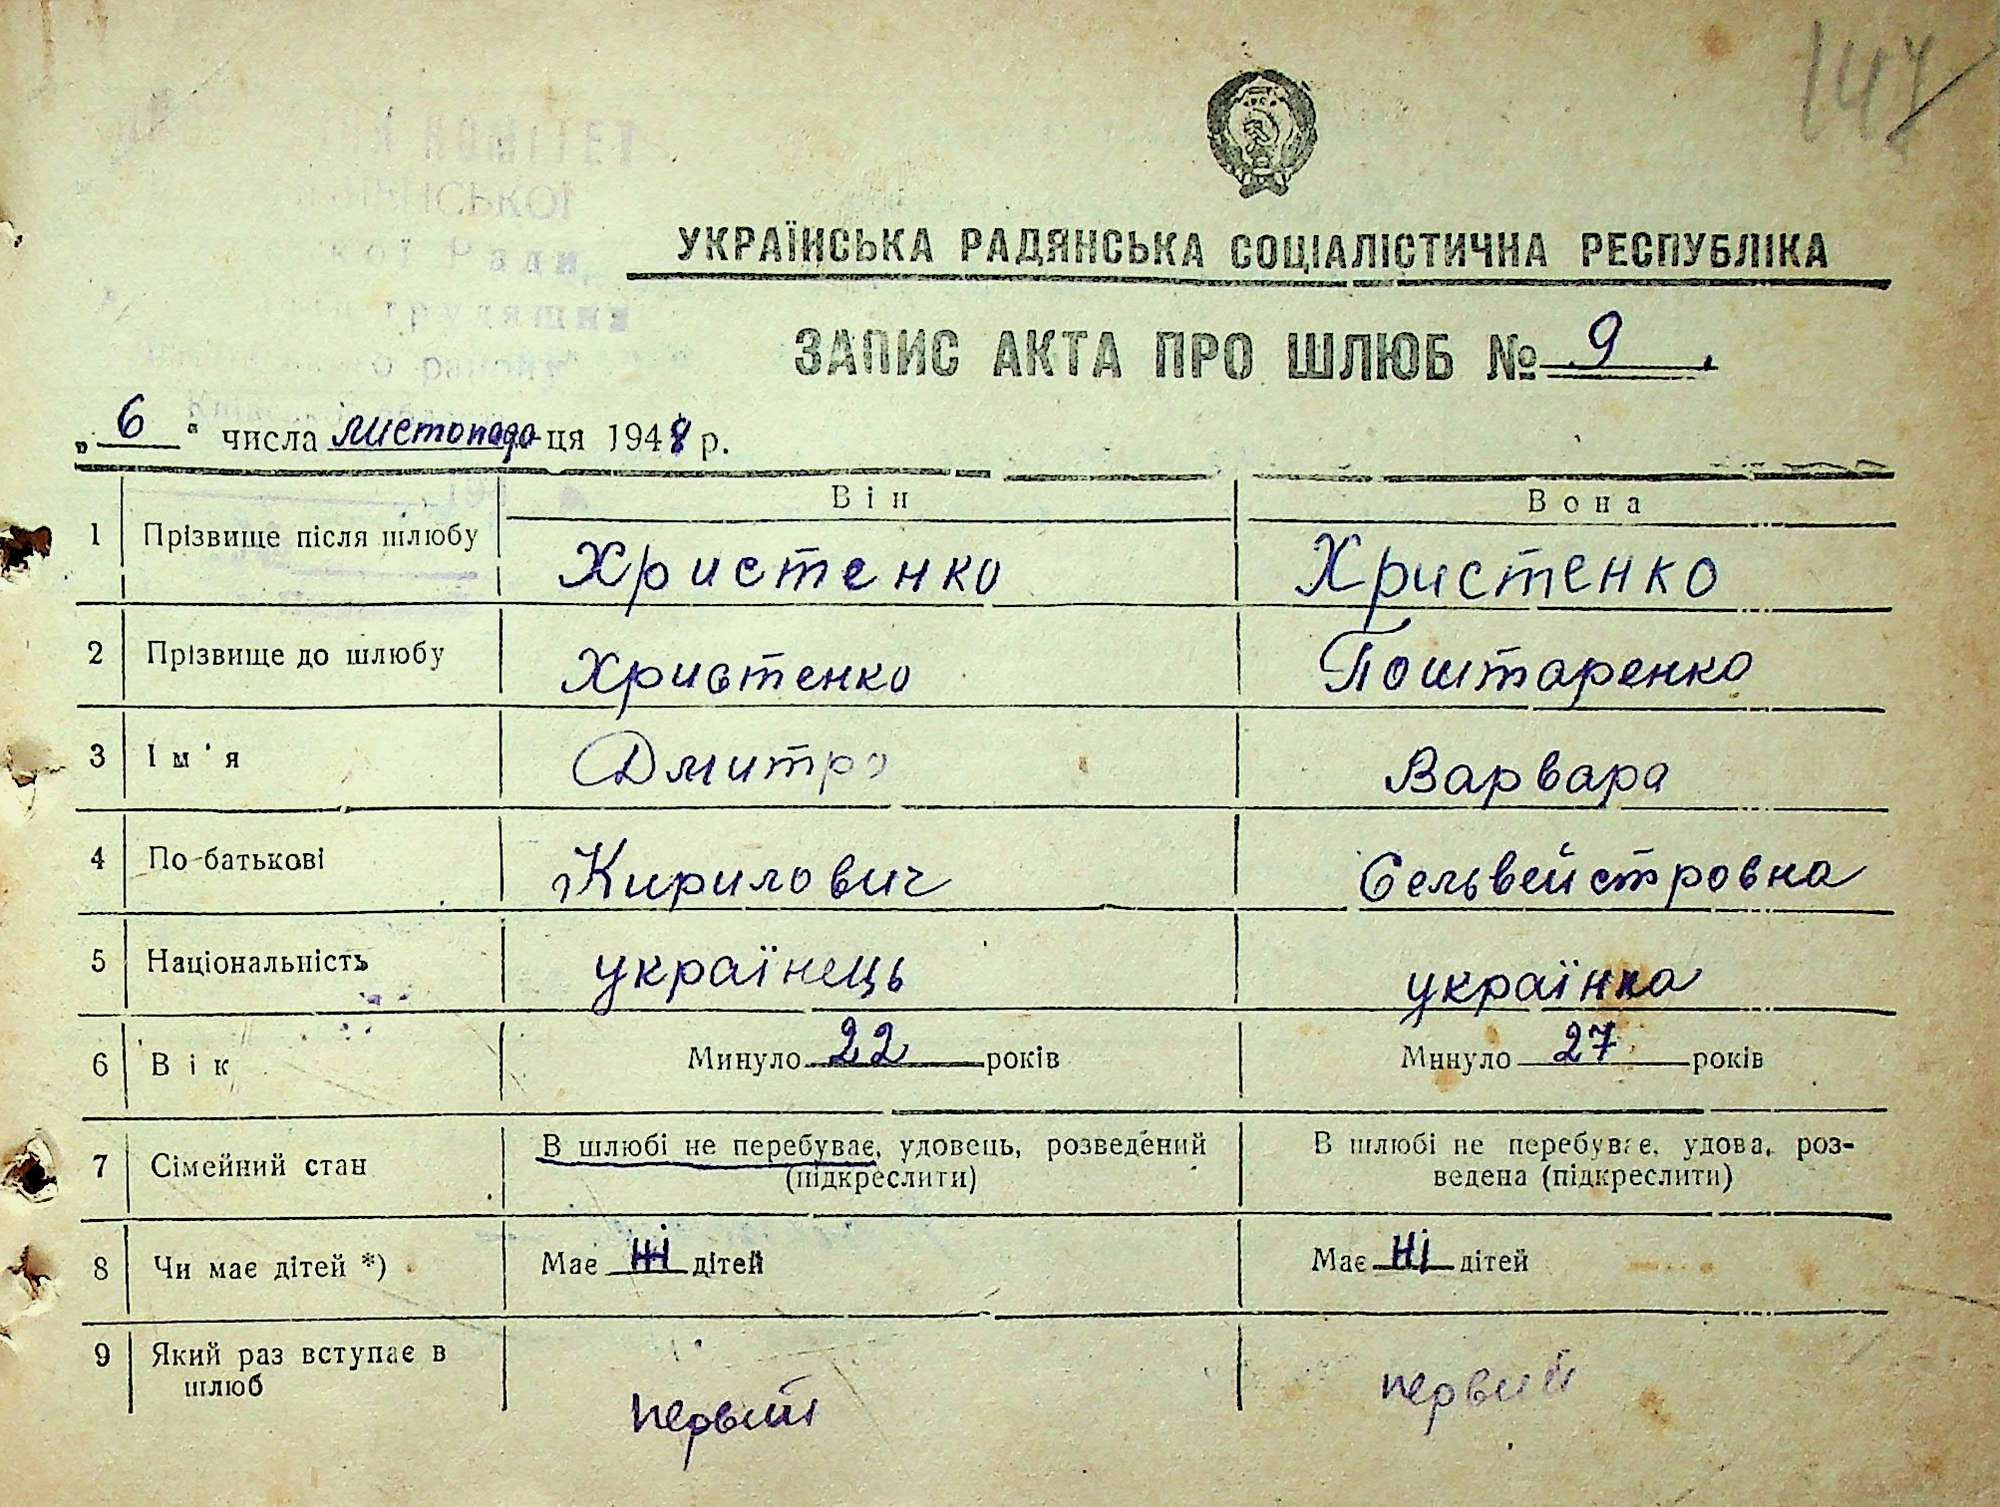 147
УКРАЇНСЬКА РАДЯНСЬКА СОЦІАЛІСТИЧНА РЕСПУБЛІКА
ЗАПИС АКТА ПРО ШЛЮБ № 9
„6“ числа листопада-ця 1948 р.
Він Вона
1 Прізвище після шлюбу Христенко Христенко
2 Прізвище до шлюбу Христенко Поштаренко
3 Ім'я Дмитро Варвара
4 По-батькові Кирилович Сельвейстровна
5 Національність українець українка
6 Вік Минуло 22 років Минуло 27 років
7 Сімейний стан В шлюбі не перебуває, удовець, розведений (підкреслити) В шлюбі не перебуває, удова, роз-
ведена (підкреслити)
8 Чи має дітей *) Має ні дітей Має ні дітей
9 Який раз вступає в
шлюб первий первий